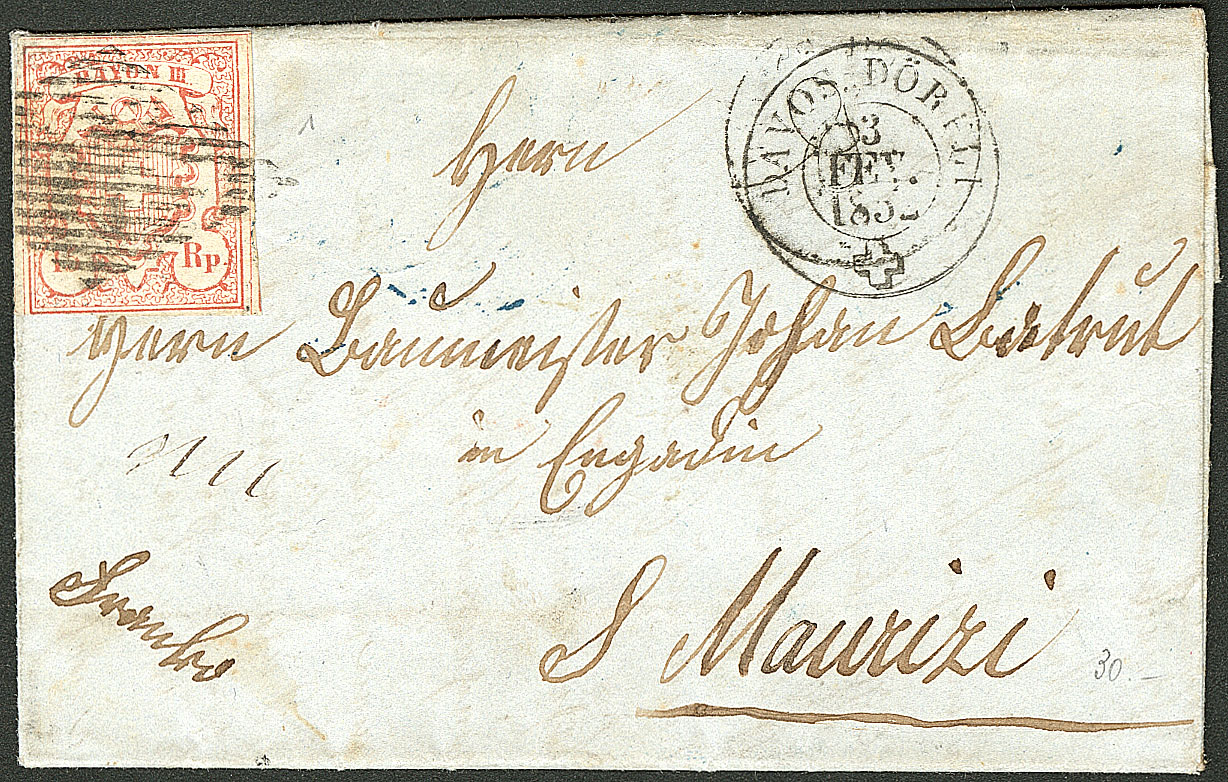 RAYON III
Rp.
DAVOS-DÖRFLI
3
FEB.
1852
Hern
Hern Baumeister Johan Batrut
in Engadin
S Maurizi
Franko
30.–